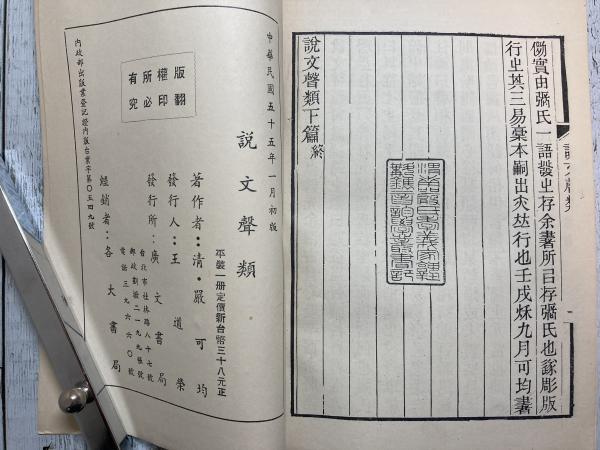 㑉實由張氏一語發㞢存余書所㠯存張氏也遂彫版
行㞢其三易稾本嗣出夾㚘行也壬戌秌九月可均書
說文聲類下篇終
說文聲類
中華民國五十五年一月初版
說文聲類
平裝一册定價新台幣三十八元正
著作者：清・嚴可均
發行人：王道榮
發行所：廣文書局
台北市杜林路八十七號
郵政劃撥二一九九帳號
電話三九六六〇號
經銷者：各大書局
版權所有
翻印必究
內政部出版業登記證內版台業字第〇五四九號